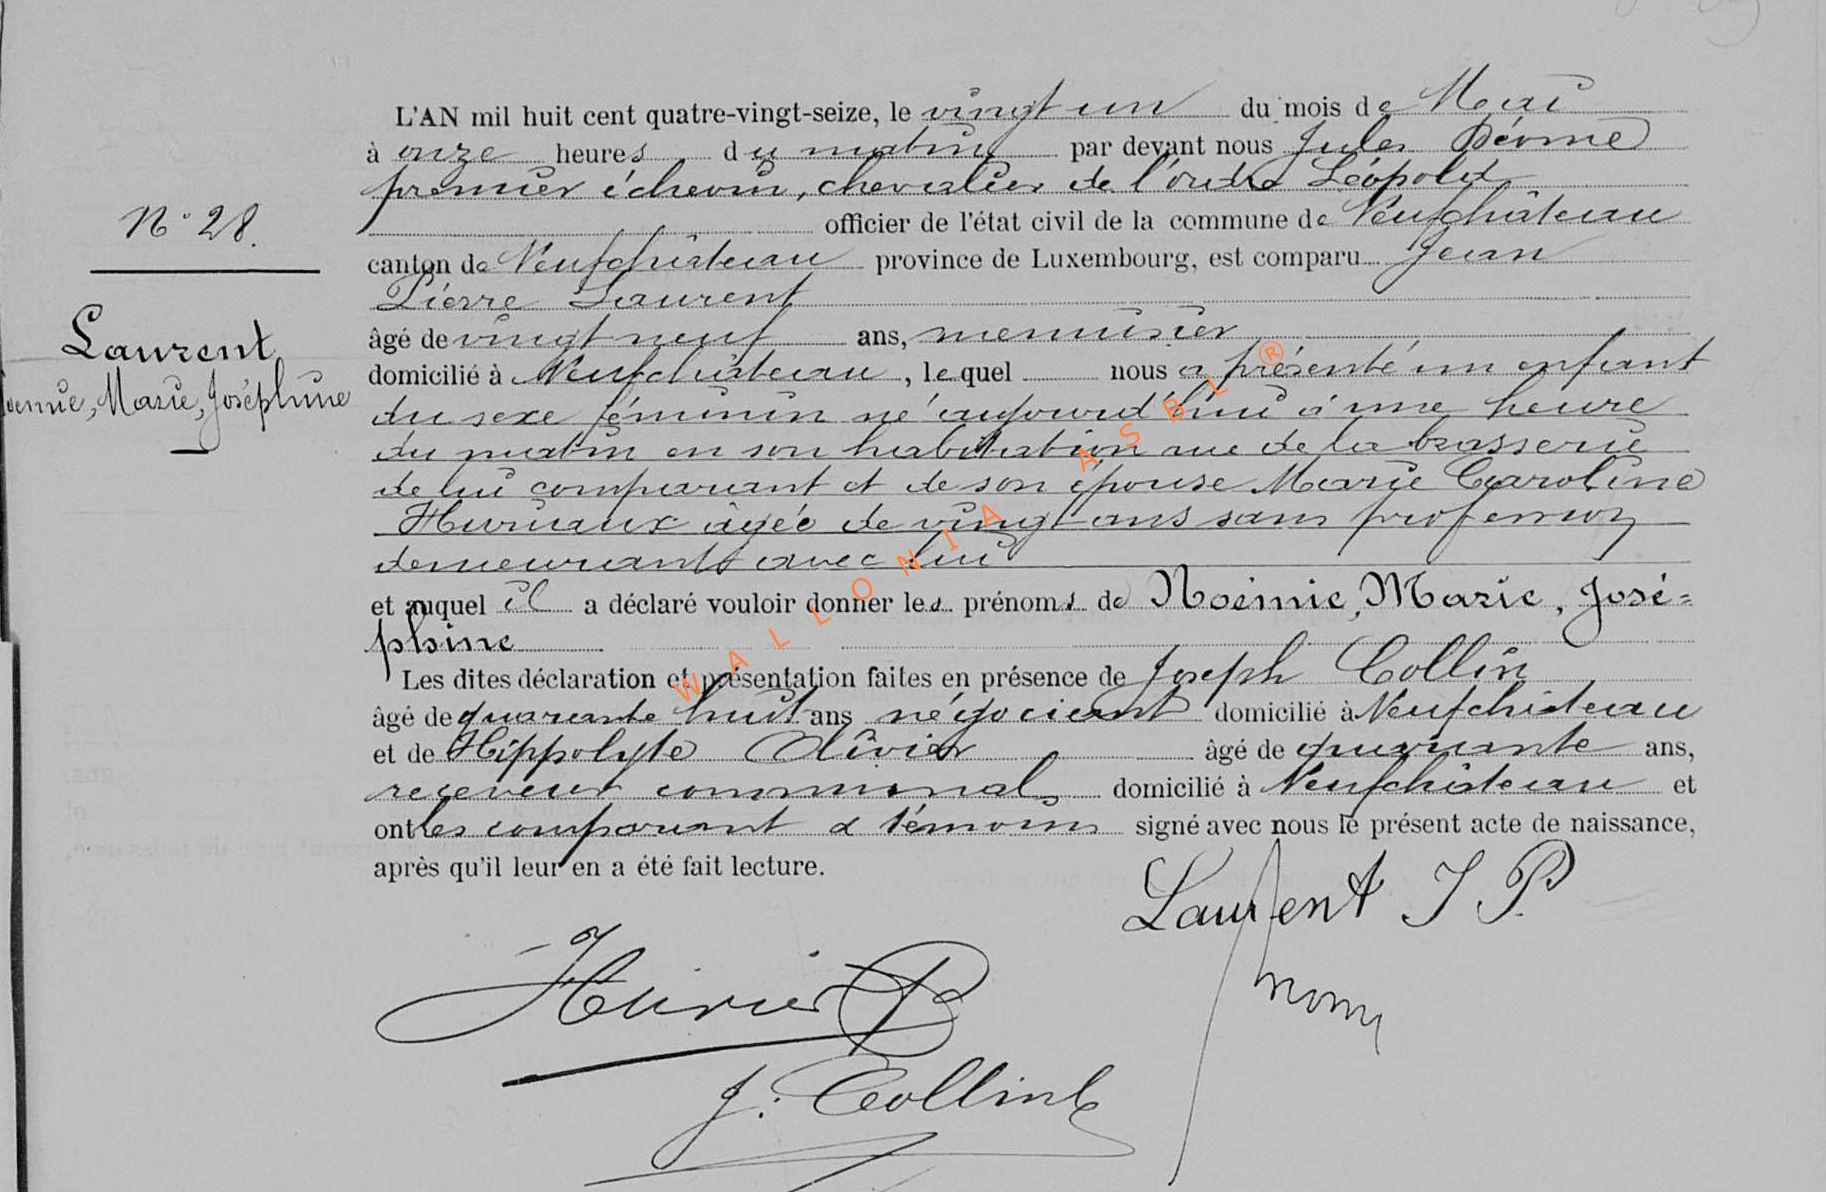 L'AN mil huit cent quatre-vingt-seize, le vingt un du mois de Mai
à onze heures du matin par devant nous Jules
premier échevin, chevalier de l'ordre Léopold
N° 28.
officier de l'état civil de la commune de Neufchâteau
canton de Neufchâteau province de Luxembourg, est comparu Jean
Pierre Laurent
Laurent
âgé de vingt neuf ans, menuisier
domicilié à Neufchâteau, lequel nous a présenté un enfant
Marie, Joséphine
du sexe féminin né aujourd'hui à une heure
du matin en son habitation rue de la brasserie
de lui comparant et de son épouse Marie Caroline
Huriaux âgée de vingt ans sans profession
demeurant avec lui
et auquel il a déclaré vouloir donner les prénoms de Noémie, Marie, José=
phine
Les dites déclaration et présentation faites en présence de Joseph Collin
âgé de quarante huit ans négociant domicilié à Neufchâteau
et de Hippolyte Olivier âgé de quarante ans,
receveur communal domicilié à Neufchâteau et
ont les comparant & témoins signé avec nous le présent acte de naissance,
après qu'il leur en a été fait lecture.
Laurent J P.
J. Collin
WALLONIA ASBL ®